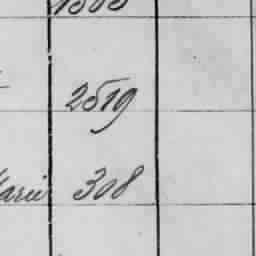 2519
Marie 308